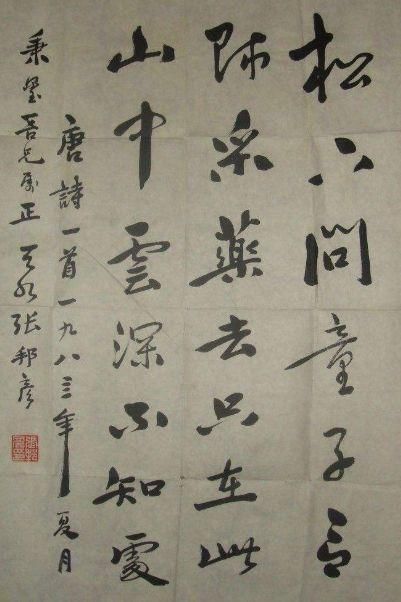 松下问童子言
師采藥去只在此
山中雲深不知處
唐詩一首一九八三年夏月
秉璧吾兄属正 天水張邦彦